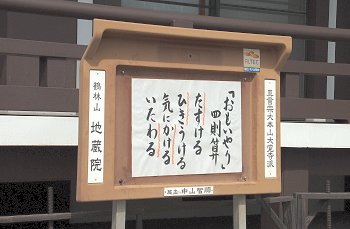 真言宗大本山大覚寺派
「おもいやり」
四則算
たすける
ひきうける
気にかける
いたわる
鶴林山 地蔵院
ALTEC